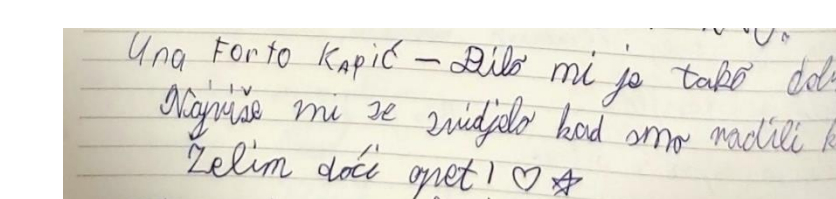 Una Forto Kapić – Bilo mi je tako dob
Najviše mi se svidjelo kad smo radili k
Želim doći opet! ♡☆